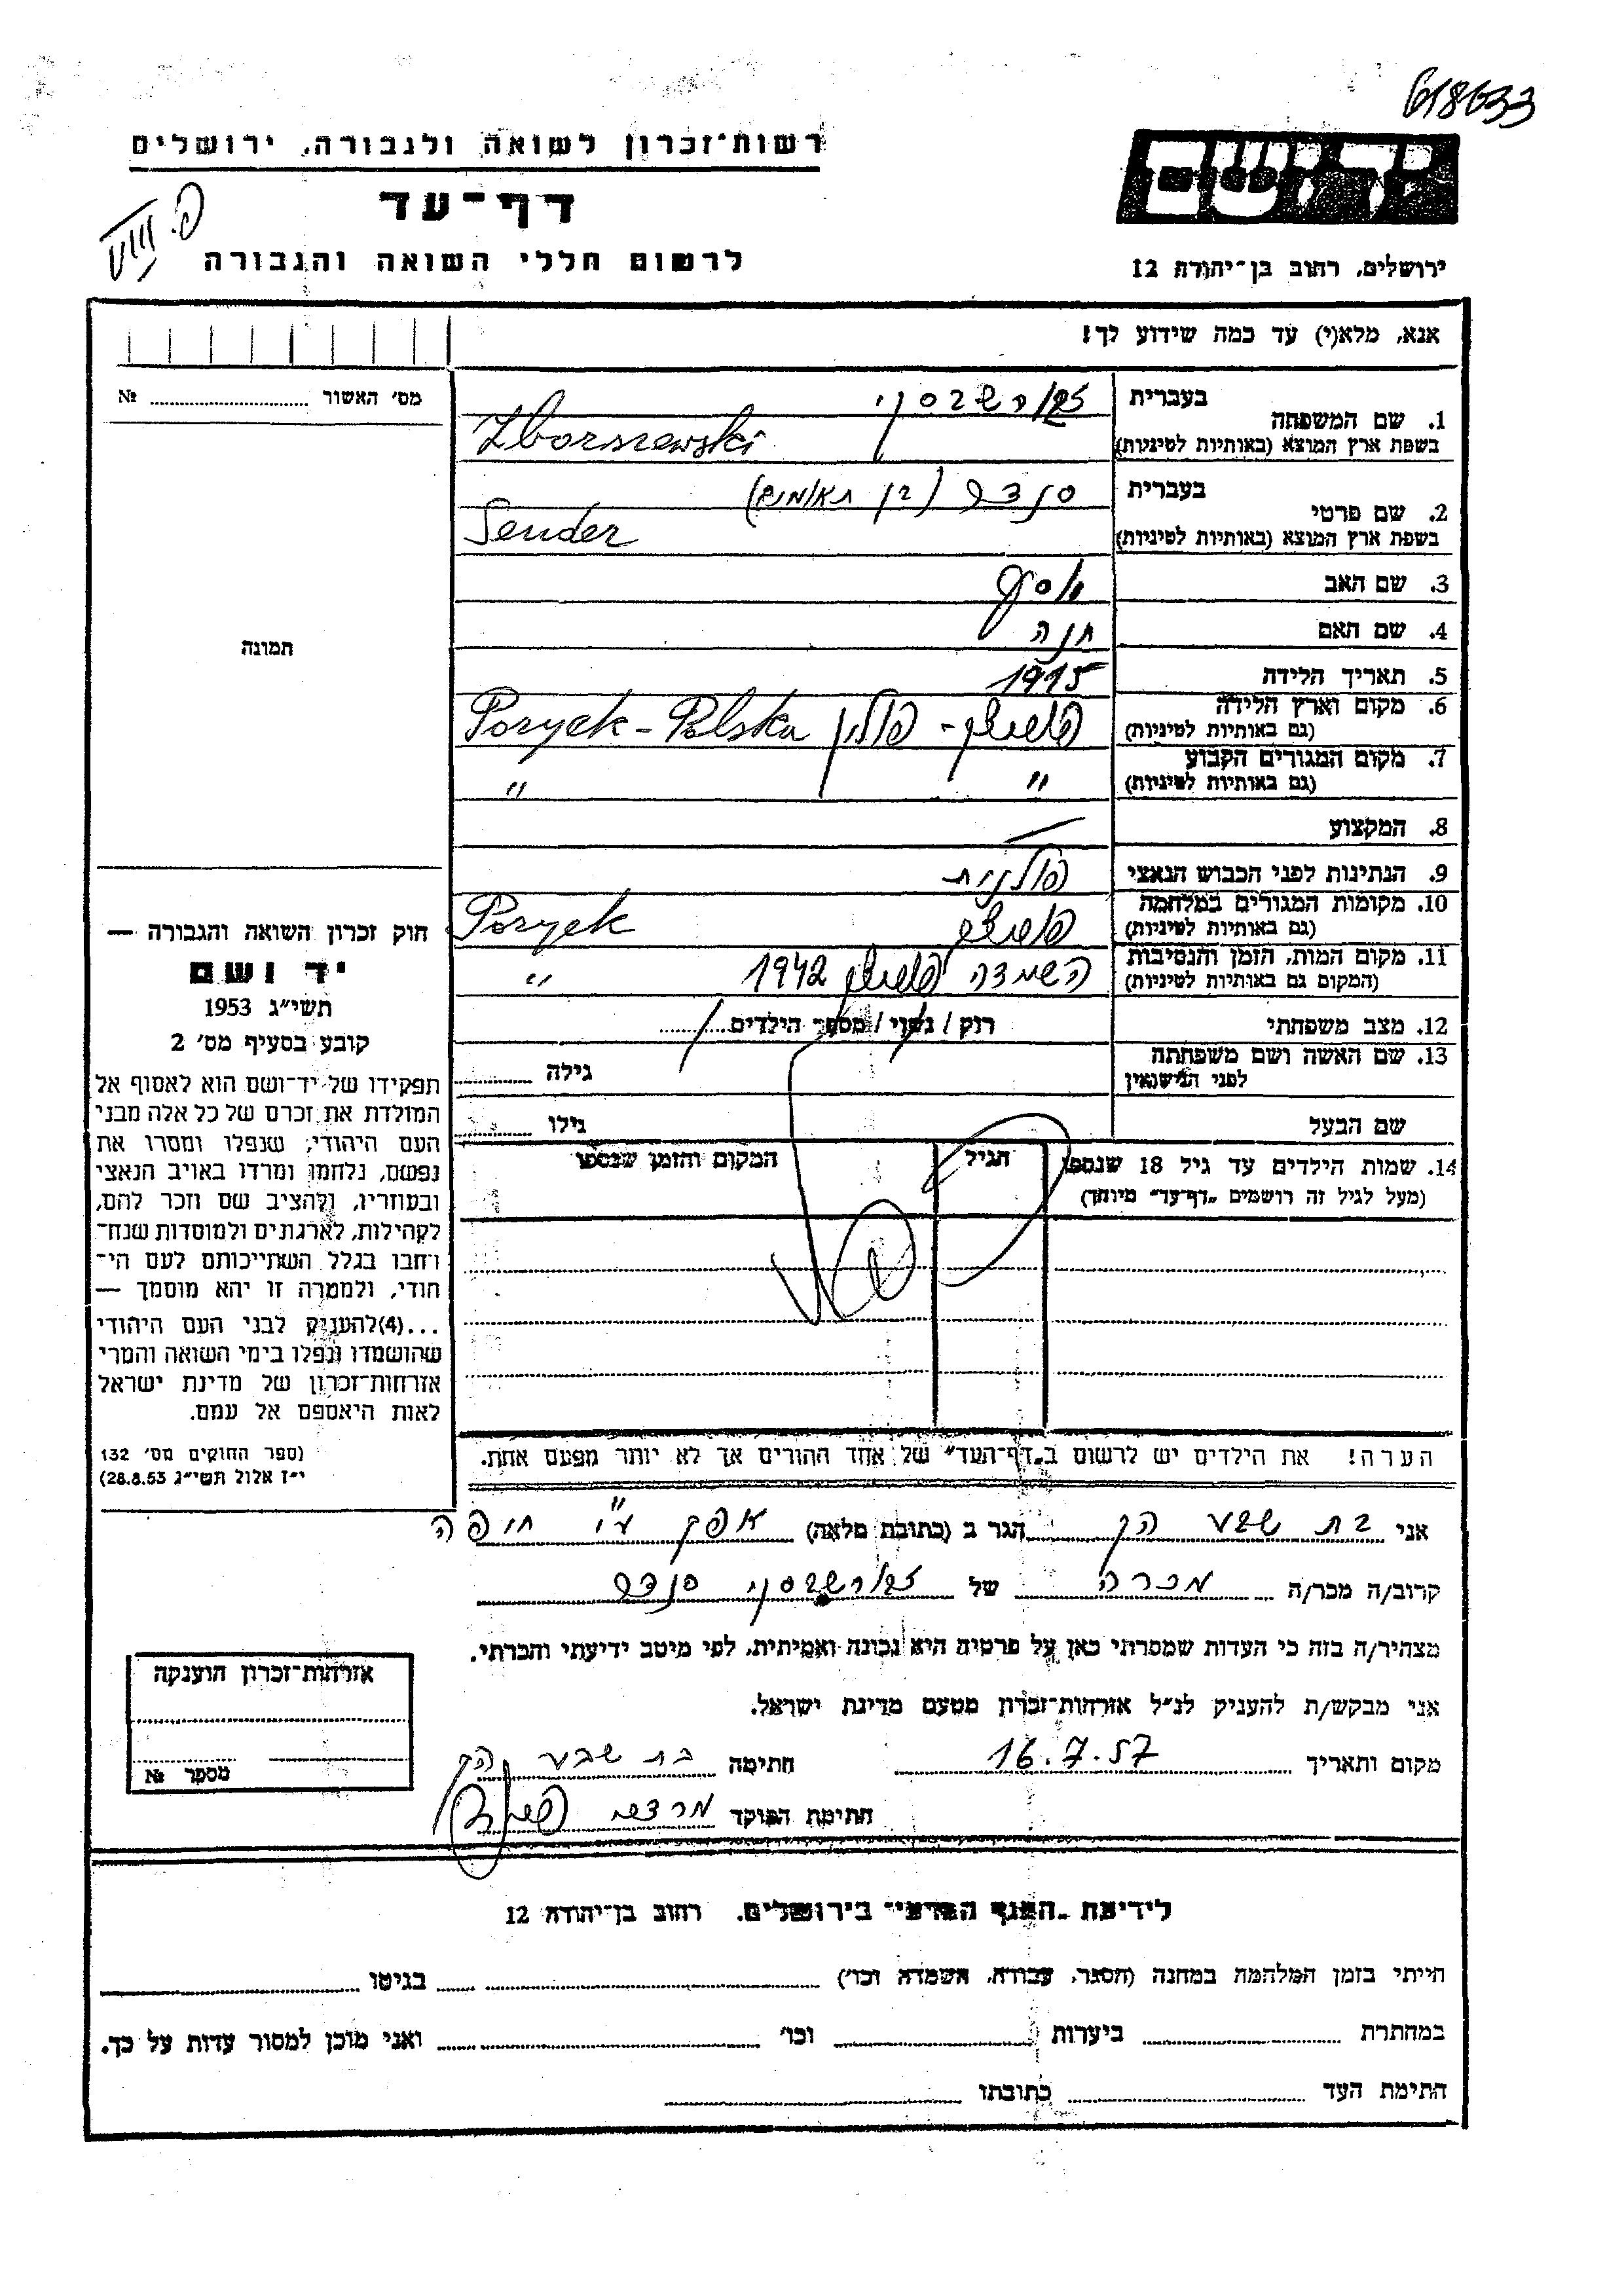 618633
רשות־זכרון לשואה ולגבורה, ירושלים
יד ושם
דף־עד
לרשום חללי השואה והגבורה
ירושלים, רחוב בן־יהודה 12
אנא, מלא(י) עד כמה שידוע לך!
מס׳ האשור №
תמונה
1. שם המשפחה
בעברית
בשפת ארץ המוצא (באותיות לטיניות)
Zborszewski
2. שם פרטי
בעברית סנדר (בן תאומים)
בשפת ארץ המוצא (באותיות לטיניות)
Sender
3. שם האב יוסף
4. שם האם חנה
5. תאריך הלידה 1915
6. מקום וארץ הלידה
(גם באותיות לטיניות)
פוריצק - פולין Poryck - Polska
7. מקום המגורים הקבוע
(גם באותיות לטיניות)
" "
8. המקצוע —
9. הנתינות לפני הכבוש הנאצי פולנית
10. מקומות המגורים במלחמה
(גם באותיות לטיניות)
פוריצק Poryck
11. מקום המות, הזמן והנסיבות
(המקום גם באותיות לטיניות)
השמדה פוריצק 1942 "
12. מצב משפחתי רוק / נשוי / מספר הילדים
13. שם האשה ושם משפחתה
לפני הנישואין
גילה
שם הבעל
גילו
14. שמות הילדים עד גיל 18 שנספו
(מעל לגיל זה רושמים „דף־עד” מיוחד)
הגיל
המקום והזמן שנספו
הערה! את הילדים יש לרשום ב„דף־העד” של אחד ההורים אך לא יותר מפעם אחת.
חוק זכרון השואה והגבורה —
יד ושם
תשי״ג 1953
קובע בסעיף מס׳ 2
תפקידו של יד־ושם הוא לאסוף אל
המולדת את זכרם של כל אלה מבני
העם היהודי, שנפלו ומסרו את
נפשם, נלחמו ומרדו באויב הנאצי
ובעוזריו, ולהציב שם וזכר להם,
לקהילות, לארגונים ולמוסדות שנח־
רחבו בגלל השתייכותם לעם הי־
הודי, ולמטרה זו יהא מוסמך —
...(4)להעניק לבני העם היהודי
שהושמדו ונפלו בימי השואה והמרי
אזרחות־זכרון של מדינת ישראל
לאות היאספם אל עמם.
(ספר החוקים מס׳ 132
י״ז אלול תשי״ג 28.8.53)
אני בת שבע הגר ב (כתובת מלאה) אפק ע"י חיפה
קרוב/ה מכר/ה מכרה של סנדר
מצהיר/ה בזה כי העדות שמסרתי כאן על פרטיה היא נכונה ואמיתית, לפי מיטב ידיעתי והכרתי.
אני מבקש/ת להעניק לנ״ל אזרחות־זכרון מטעם מדינת ישראל.
מקום ותאריך 16.7.57 חתימה בת שבע
חתימת הפוקד מרדכי
אזרחות־זכרון הוענקה
מספר №
לידיעת „הגוף הפרטי” בירושלים, רחוב בן־יהודה 12
הייתי בזמן המלחמה במחנה (הסגר, עבודה, השמדה וכו׳) בגיטו
במחתרת ביערות וכו׳ ואני מוכן למסור עדות על כך.
חתימת העד כתובתו